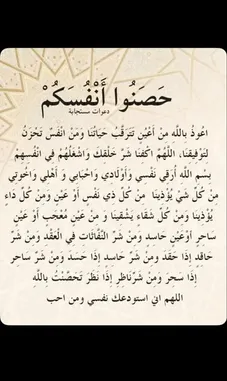 حَصِّنُوا أَنْفُسَكُمْ
دعوات مستجابة
اعُوذُ باللَّه مِنْ اَعْيُنٍ تَتَرقَّبُ حَيَاتَنَا وَمَنْ انَفَسٍ تَحْزَنُ
لِتَوْفيقنَا، اللَّهُمَّ اكْفِنَا شَرَّ خَلْقكَ وَاشْغلْهُمْ في اَنْفُسِهِمْ
بِسْمِ اللَّه اُرَقِي نَفْسِي وَاَوْلَادي وَاَحْبَابِي وَ اَهْلِي وَاخْوتِي
مِنْ كُلِّ شَيْ يُؤَذيِنَا مِنْ كُلِّ ذي نَفْسٍ اَوْ عَيْنٍ وَمِنْ كُلِّ دَاءٍ
يُؤْذينَا وَمِنْ كُلِّ شقَاء يَشْقينَا وَ مِنْ عَيْنٍ مُعْجَبٍ اَوْ عَيْنٍ
سَاحرٍ اوْعَيْنٍ حَاسدٍ وَمِنْ شَرِّ النَّفَّاثَاتِ في الْعقَد وَمِنْ شَرِّ
حَاقدٍ إذَا حَقَدَ وَمِنْ شَرِّ حَاسدٍ إذَا حَسَدَ وَمِنْ شَرِّ سَاحرٍ
إذَا سَحَرَ وَمِنْ شَرِّنَاظرٍ إذَا نَظَرَ تَحَصَّنْتُ باللَّه
اللهم اني استودعك نفسي ومن احب